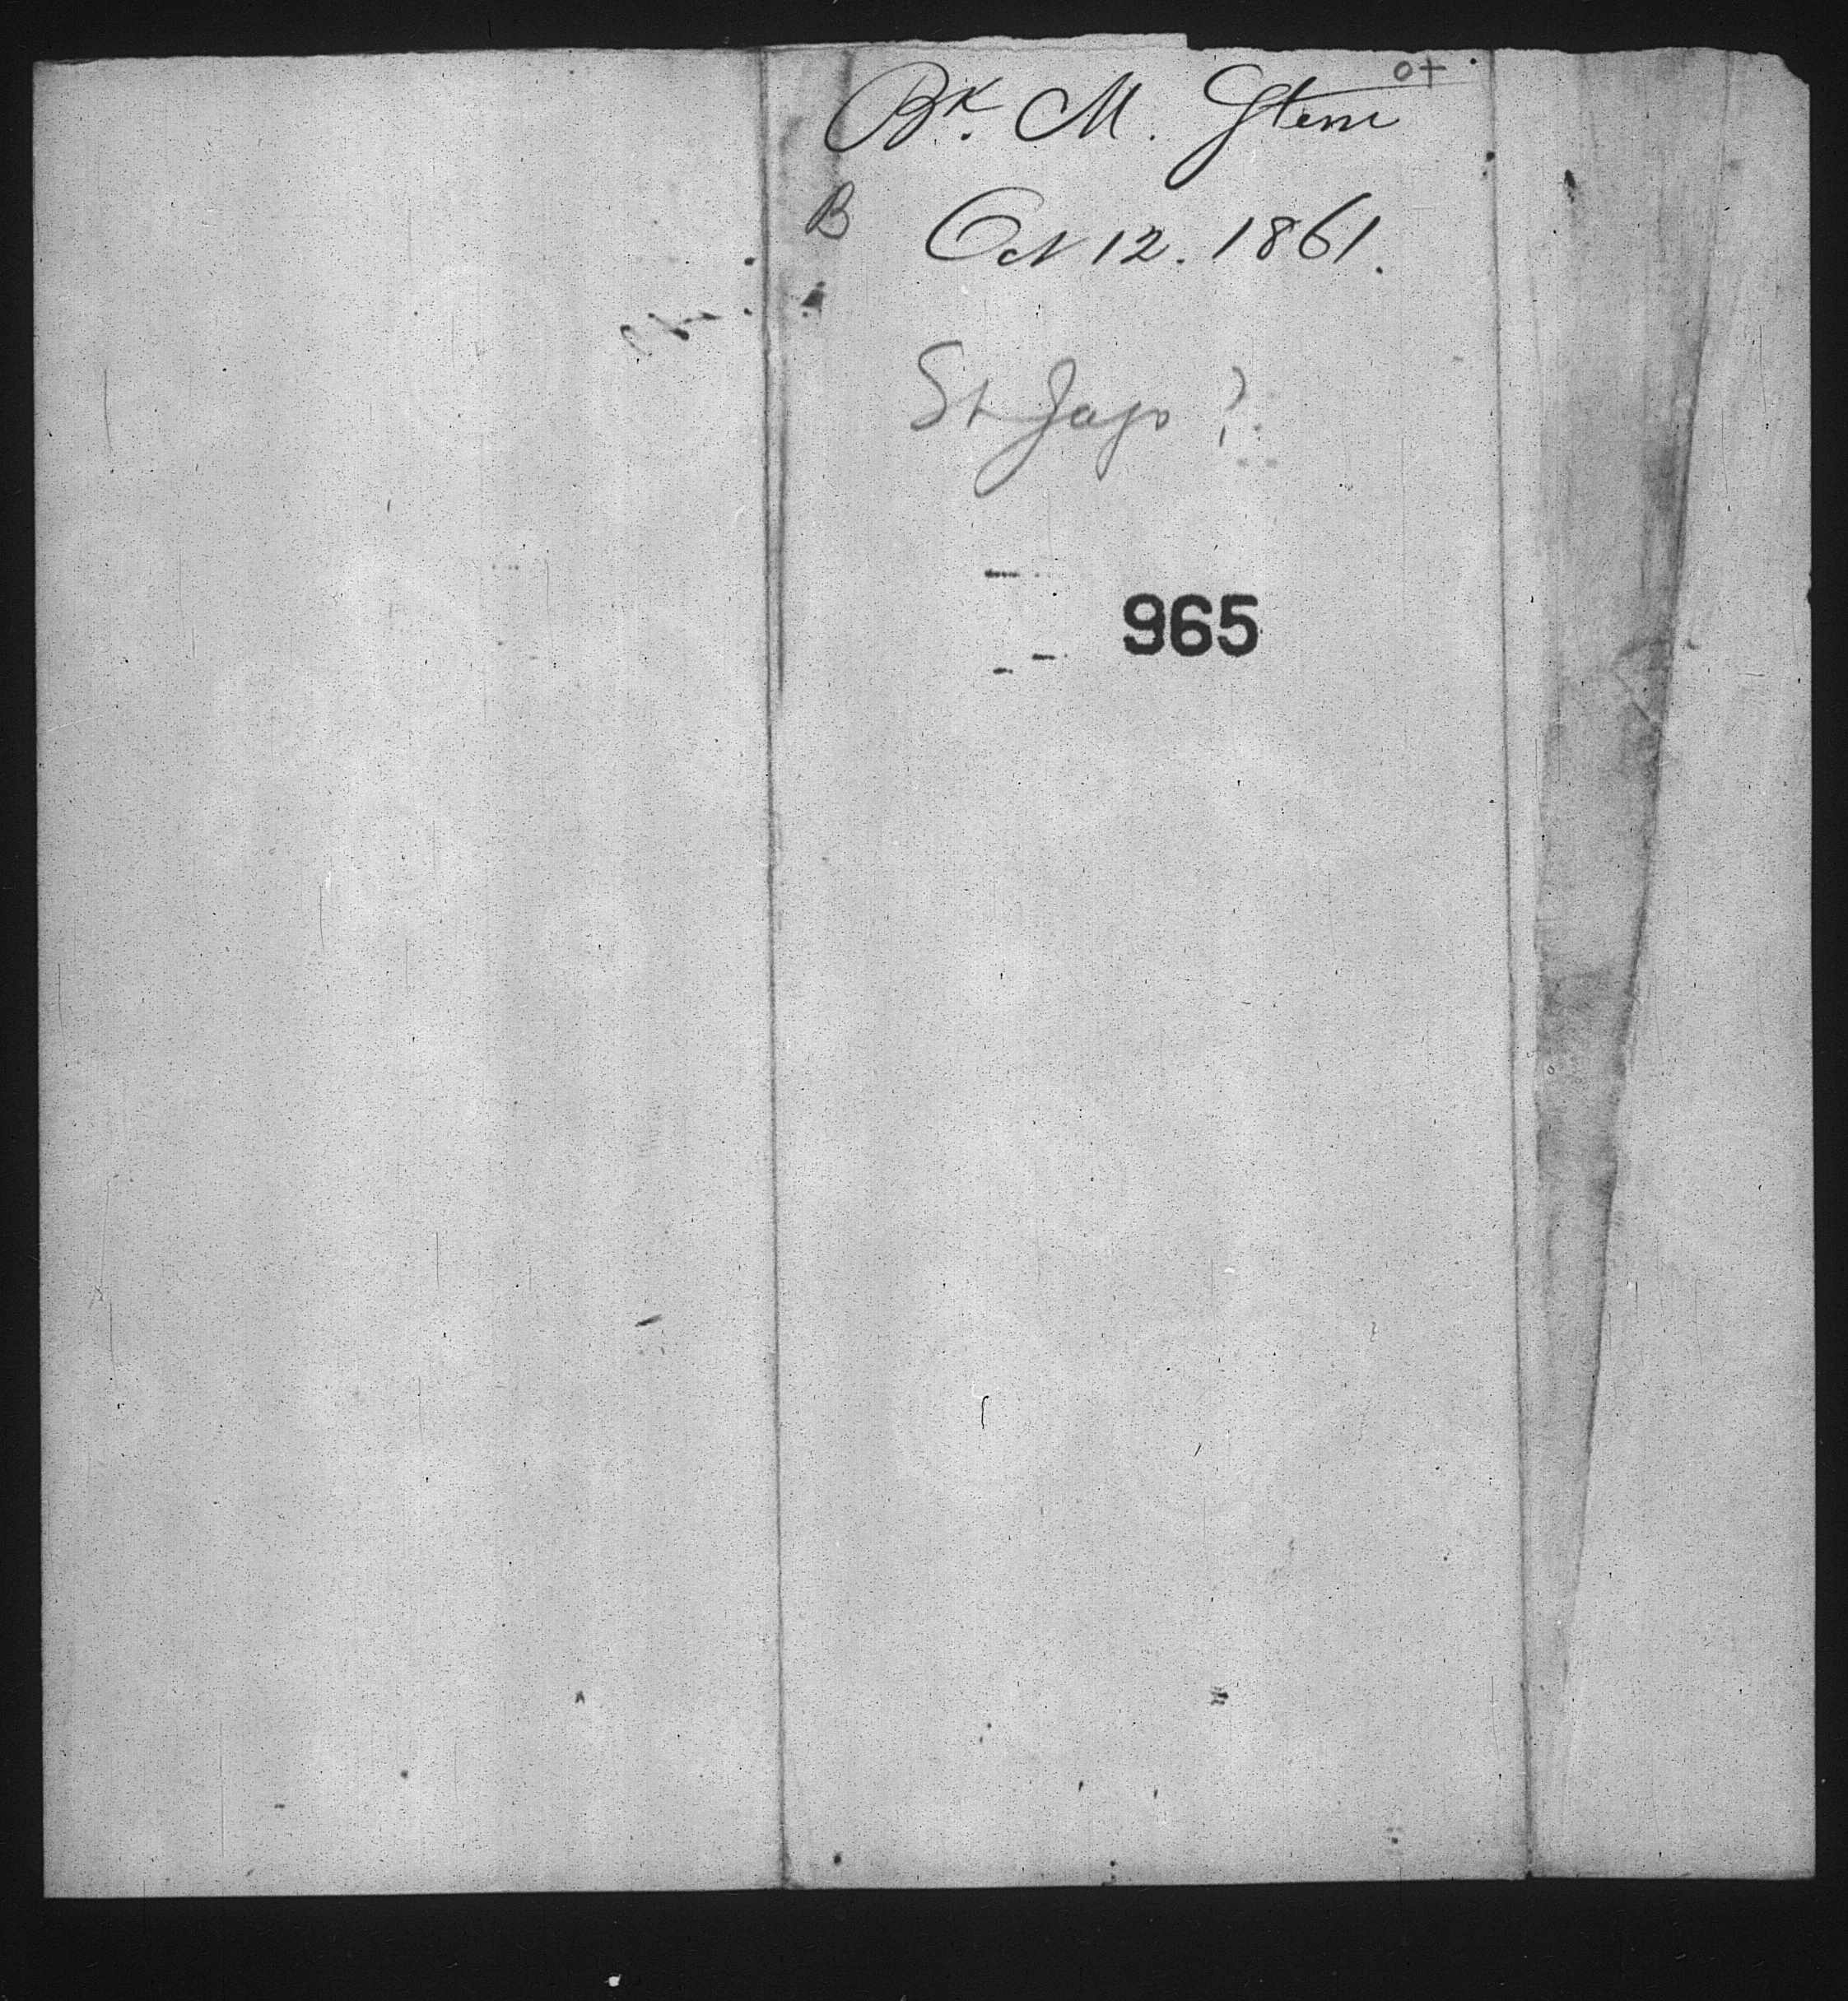 o+
Bk. M. Stern
B
Oct 12. 1861.
St Jago ?
965